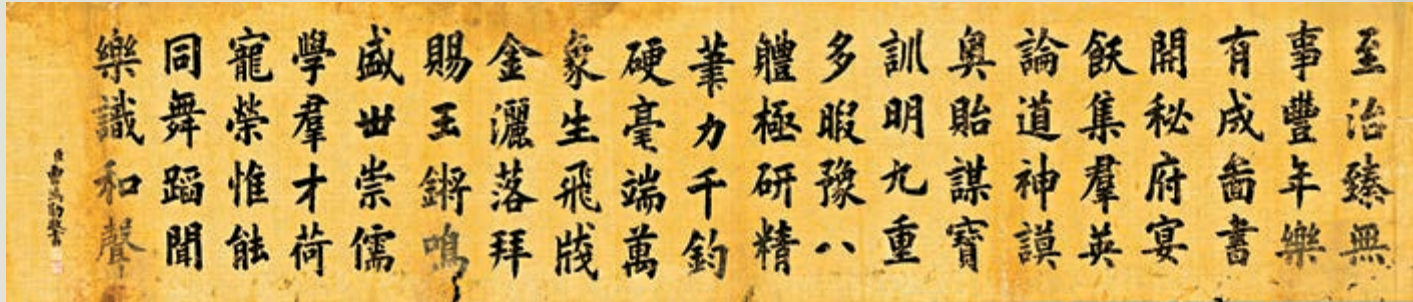 至治臻無
事豐年樂
有成啚書
開秘府宴
飫集羣英
論道神謨
奥貽謀寶
訓明九重
多暇豫八
體極研精
筆力千鈞
硬毫端萬
象生飛牋
金灑落拜
賜王鏘鳴
盛世崇儒
學羣才荷
寵榮惟能
同舞蹈聞
樂識和聲